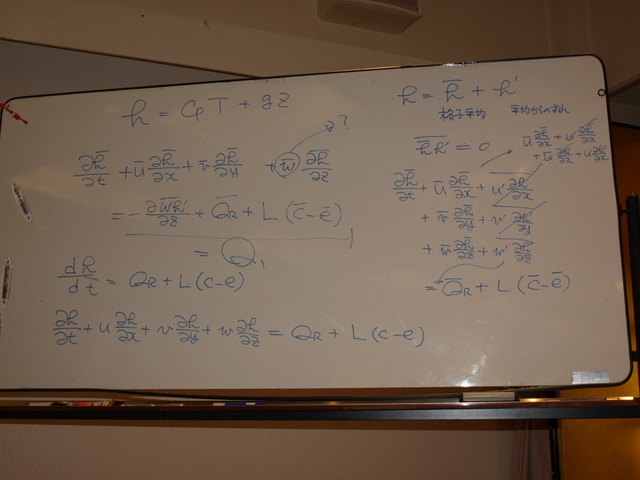 h = CpT + gz
∂h̄/∂t + ū ∂h̄/∂x + v̄ ∂h̄/∂y + w̄ ∂h̄/∂z
?
= - ∂w'h'/∂z + Q̄R + L (c̄ - ē)
= Q₁
dh/dt = QR + L (c - e)
∂h/∂t + u ∂h/∂x + v ∂h/∂y + w ∂h/∂z = QR + L (c - e)
h = h̄ + h'
格子平均 平均からのずれ
h̄h' = 0
∂h̄/∂t + ū ∂h̄/∂x + u' ∂h'/∂x
+ v̄ ∂h̄/∂y + v' ∂h'/∂y
+ w̄ ∂h̄/∂z + w' ∂h'/∂z
= Q̄R + L (c̄ - ē)